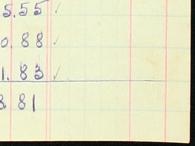 5.55 ✓
0.88 ✓
1.83 ✓
8 81